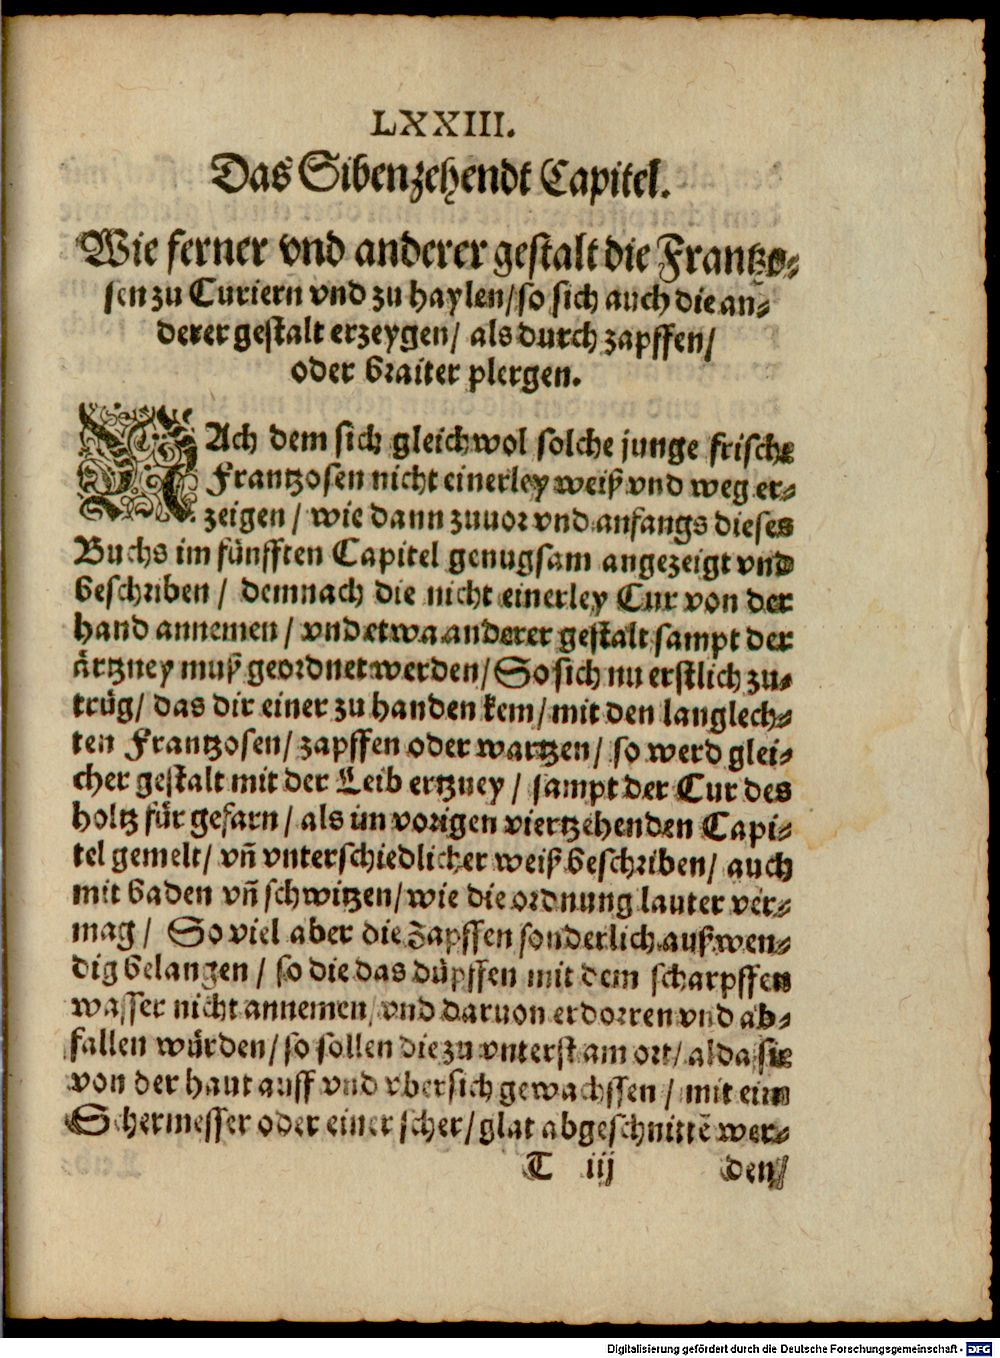 LXXIII.
Das Sibenzehendt Capitel.
Wie ferner vnd anderer gestalt die Frantzo-
sen zu Curiern vnd zu haylen/ so sich auch die an-
derer gestalt erzeygen/ als durch zapffen/
oder braiter plergen.
NAch dem sich gleichwol solche junge frische
Frantzosen nicht einerley weiß vnd weg er-
zeigen / wie dann zuuor vnd anfangs dieses
Buchs im fünfften Capitel genugsam angezeigt vnd
beschriben / demnach die nicht einerley Cur von der
hand annemen / vnd etwa anderer gestalt sampt der
ärtzney muß geordnet werden/ So sich nu erstlich zu-
trüg/ das dir einer zu handen kem/ mit den langlech-
ten Frantzosen/ zapffen oder wartzen/ so werd glei-
cher gestalt mit der Leib ertzney / sampt der Cur des
holtz für gefarn / als im vorigen viertzehenden Capi-
tel gemelt/ vñ vnterschiedlicher weiß beschriben/ auch
mit baden vñ schwitzen/ wie die ordnung lauter ver-
mag / So viel aber die Zapffen sonderlich außwen-
dig belangen / so die das düpffen mit dem scharpffen
wasser nicht annemen/ vnd daruon erdorren vnd ab-
fallen würden/ so sollen die zu vnterst am ort/ alda sie
von der haut auff vnd vbersich gewachssen / mit eim
Schermesser oder einer scher/ glat abgeschnittē wer-
T iij den/
Digitalisierung gefördert durch die Deutsche Forschungsgemeinschaft - DFG